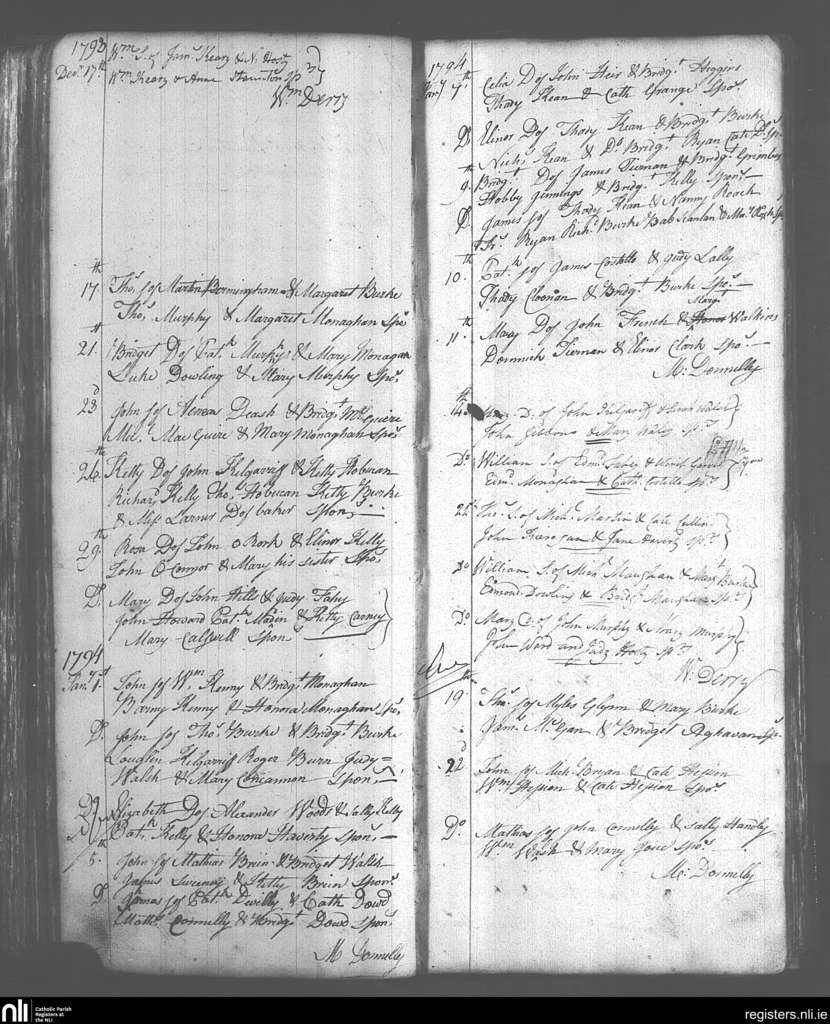 1793
Decr 17th Wm S. of Jams Keary & N. Hosty
Wm Keary & Anne Staunton Sprs
Wm Derry
17th Thos. Sof Martin Bermingham & Margaret Burke
Thos. Murphy & Margaret Monaghan Sprs
21st Bridget Dof Patk Murphy & Mary Monagan
Luke Dowling & Mary Murphy Sprs
23d John Sof Aeneas Deash & Bridgt McGuire
Mac Guire & Mary Monaghan Spors
26th Kitty Dof John Kelgarriff & Kitty Hobucan
Richard Kelly Thos. Hobucan Kitty Burke
& Miss Larner Dof baker Spons
29th Rosa Dof John O Rork & Elinor Kelly
John O'Connor & Mary his sister Spors
Do Mary Dof John Hills & Judy Fahy
John Howard Patk Madin & Kitty Carney
Mary Calwell Spons
1794
Jany 1st John Sof Wm Kenny & Bridgt Monaghan
Barny Kenny & Honora Monaghan Spors
Do John Sof Thos. Burke & Bridgt Burke
Loughlin Kelgarriff Roger Burn Judy
Walsh & Mary Concannon Spons
Elizabeth Dof Alexander Woods & Sally Kelly
Patk Kelly & Honora Haverty Spons
5th John Sof Mathias Brein & Bridget Walsh
James Sweeney & Kitty Brien Spons
Do James Sof Patk Devilly & Cath Dowd
Matts. Connelly & Bridgt Dowd Spons
M Donnelly
1794
Jany 7th Celia Dof John Heir & Bridgt Higgins
Thady Kean & Cath Grange Spors
Do Elinor Dof Thady Kean & Bridgt Burke
Nichs Kean & Do Bridgt Ryan Cate
9th Bridgt Dof James Tiernan & Bridgt
Hobby Jennings & Bridgt Kelly Spons
Do James Sof Thady Kean & Nanny Roach
Ryan Richd Burke Bab Scanlan &
10th Patk Sof James Costello & Judy Lally
Thady Cloonan & Bridgt Burke Spors
Margt
11th Mary Dof John French & Honor Walkins
Dominick Tiernan & Elinor Clark Spors
M. Donnelly
14th D. of John &
John Gibbons & Mary Spr
Do William S. of Edmd &
Edmd Monaghan & Cath Costello Sprs
Thos. S. of Michl Martin & Cate Cullin
John & Jane Sprs
Do William S. of Michl Maughan & Mary Burke
Edmond Dowling & Bridgt Maughan Sprs
Do Mary D. of John Murphy & Mary Murphy
John Ward and Judy Hosty Sprs
Wm Derry
19th Thos. Sof Myles Glynn & Mary Burke
James & Bridget Spr
22d John Sof Mich Bryan & Cate Hession
Wm Hession & Cate Hession Spors
Do Mathias Sof John Connelly & Sally Hanly
Wm & Mary Spors
M. Donnelly
nli
Catholic Parish
Registers at
the NLI
registers.nli.ie